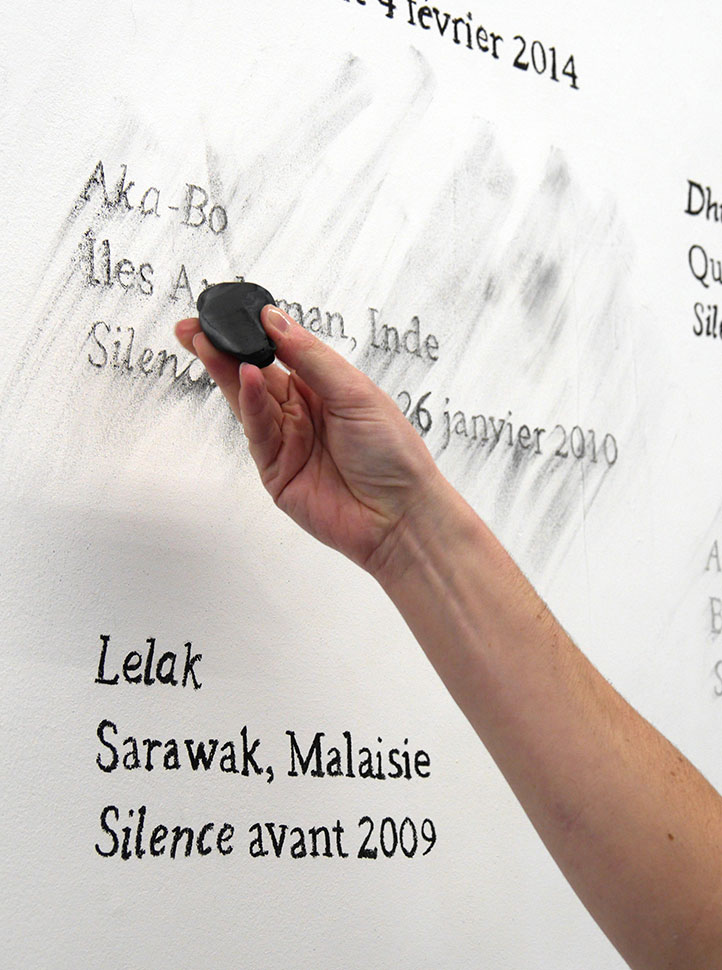 4 février 2014
Aka-Bo
Îles Andaman, Inde
Silence 26 janvier 2010
Lelak
Sarawak, Malaisie
Silence avant 2009